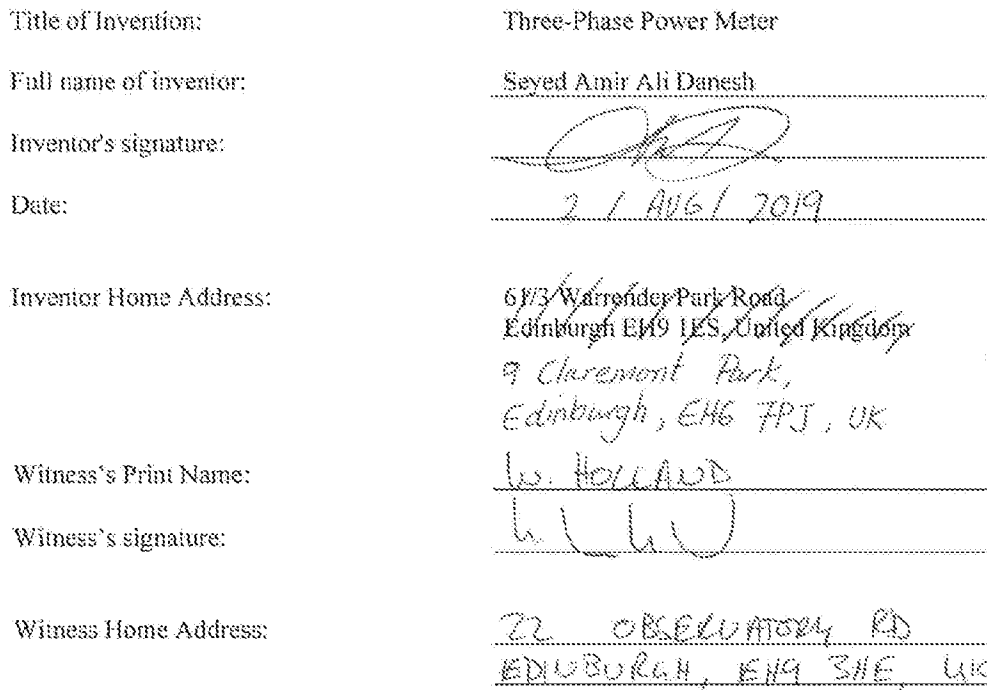 Title of Invention: Three-Phase Power Meter
Full name of inventor: Seyed Amir Ali Danesh
Inventor's signature:
Date: 2 / AUG / 2019
Inventor Home Address: 61/3 Warrender Park Road
Edinburgh EH9 1ES, United Kingdom
9 Claremont Park,
Edinburgh, EH6 7PJ, UK
Witness's Print Name: W. HOLLAND
Witness's signature:
Witness Home Address: 22 OBSERVATORY RD
EDINBURGH, EH9 3HE, UK